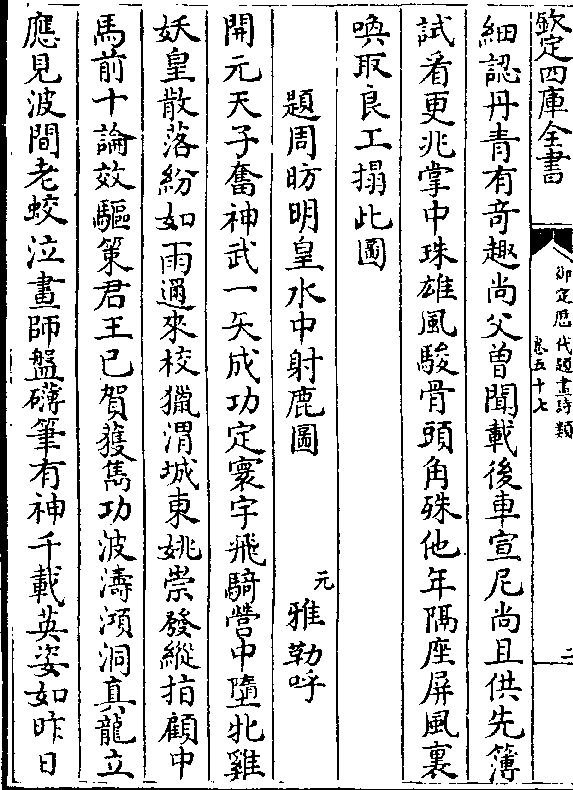 欽定四庫全書
御定歷代題畫詩類
卷五十七
二
細認丹青有竒趣尚父曽聞載後車宣尼尚且供先簿
試看更兆掌中珠雄風駿骨頭角殊他年隔座屏風裏
喚取良工搨此圖
題周昉明皇水中射鹿圖
元
雅勒呼
開元天子奮神武一矢成功定寰宇飛騎營中墮牝雞
妖皇散落紛如雨邇來校獵渭城東姚崇發縱指顧中
馬前十論效驅策君王已賀獲雋功波濤澒洞真龍立
應見波間老蛟泣畫師盤礴筆有神千載英姿如昨日